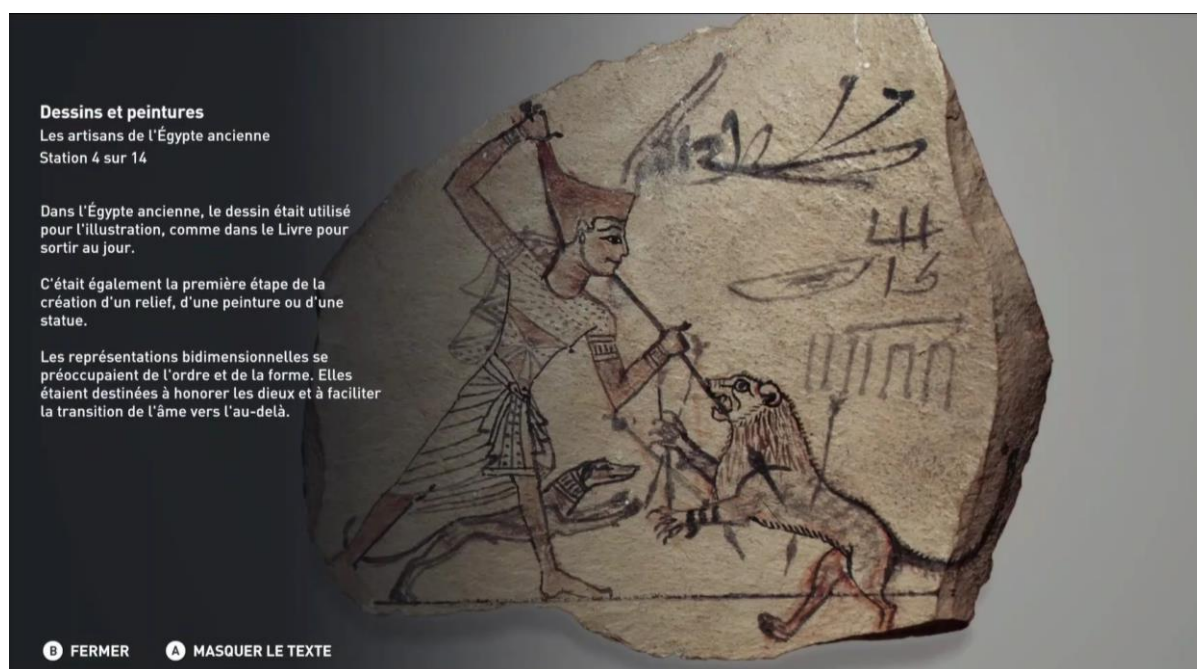 Dessins et peintures
Les artisans de l'Égypte ancienne
Station 4 sur 14
Dans l'Égypte ancienne, le dessin était utilisé
pour l'illustration, comme dans le Livre pour
sortir au jour.
C'était également la première étape de la
création d'un relief, d'une peinture ou d'une
statue.
Les représentations bidimensionnelles se
préoccupaient de l'ordre et de la forme. Elles
étaient destinées à honorer les dieux et à faciliter
la transition de l'âme vers l'au-delà.
B FERMER A MASQUER LE TEXTE